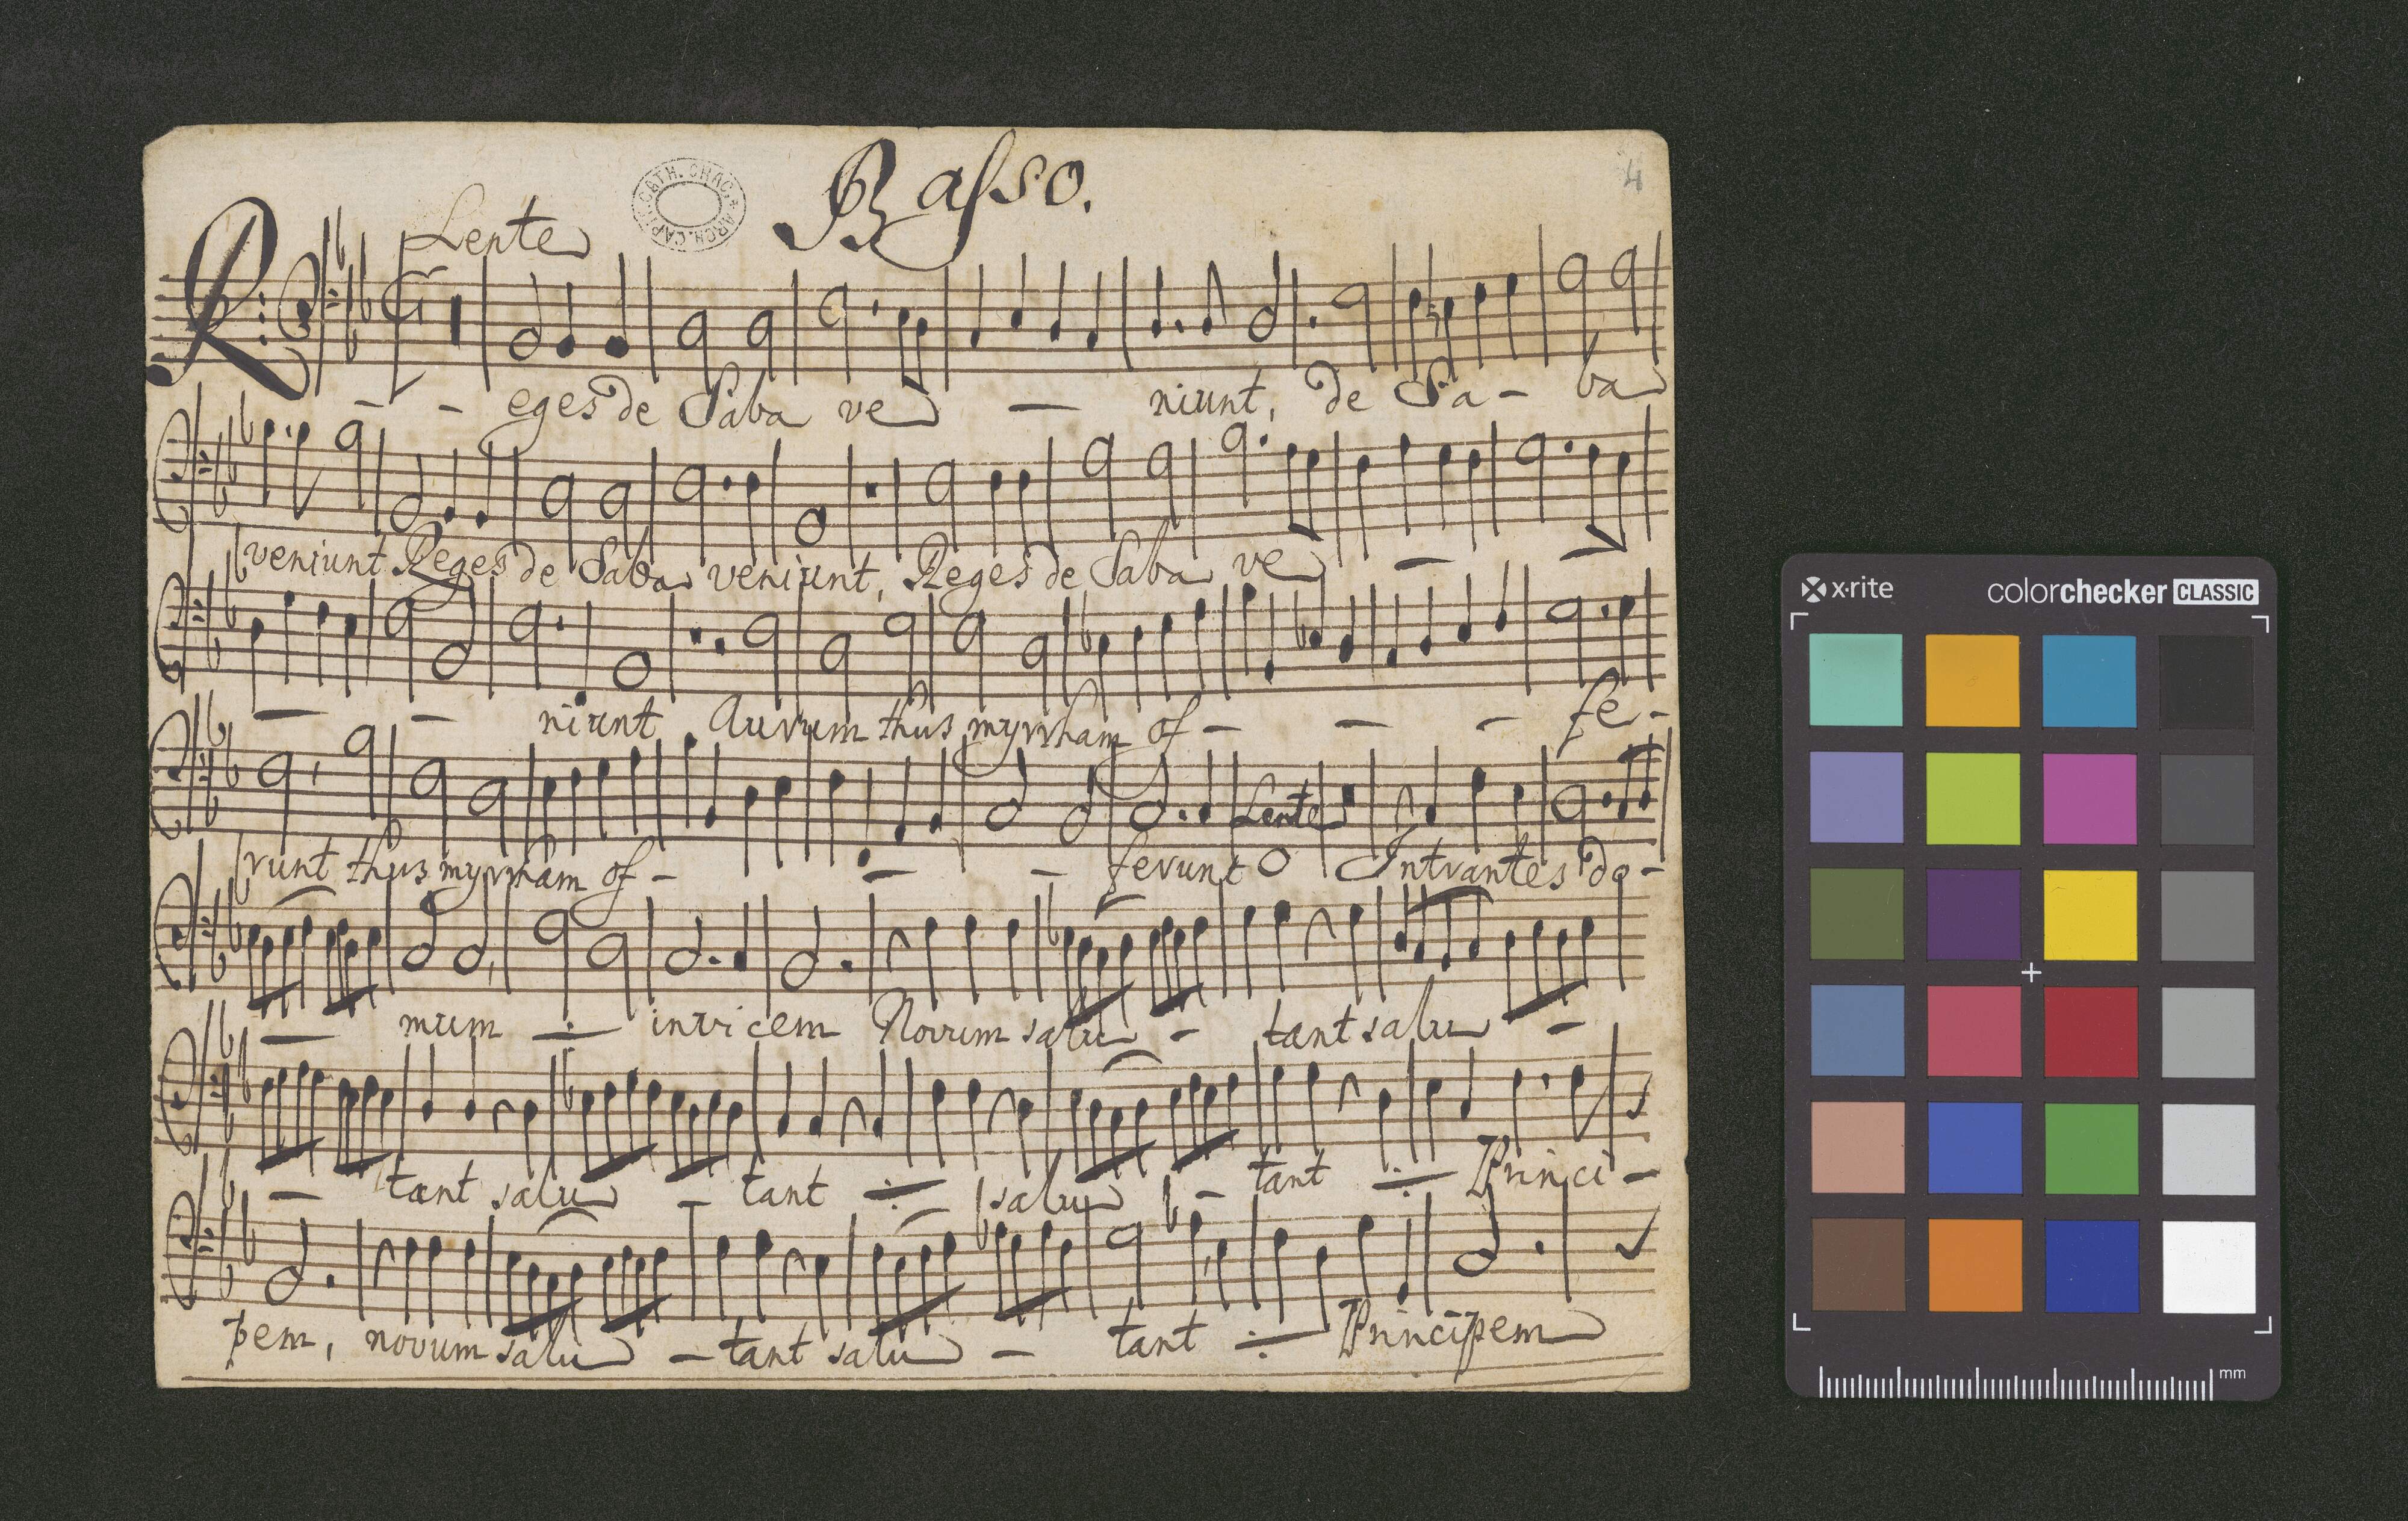 Basso.
4
CATH. CRAC. ARCH. CAP.
Lente
Reges de Saba ve - niunt, de Sa - ba
veniunt Reges de Saba veniunt, Reges de Saba ve - -
- - niunt Aurum thus myrrham of - - - fe -
runt thus myrrham of - - - ferunt O Intrantes do -
Lente
- mum ∻ invicem Novum salu - tant salu -
- tant salu - tant ∻ salu - tant ∻ Princi -
pem, novum salu - tant salu - tant ∻ Principem
x·rite colorchecker CLASSIC
mm